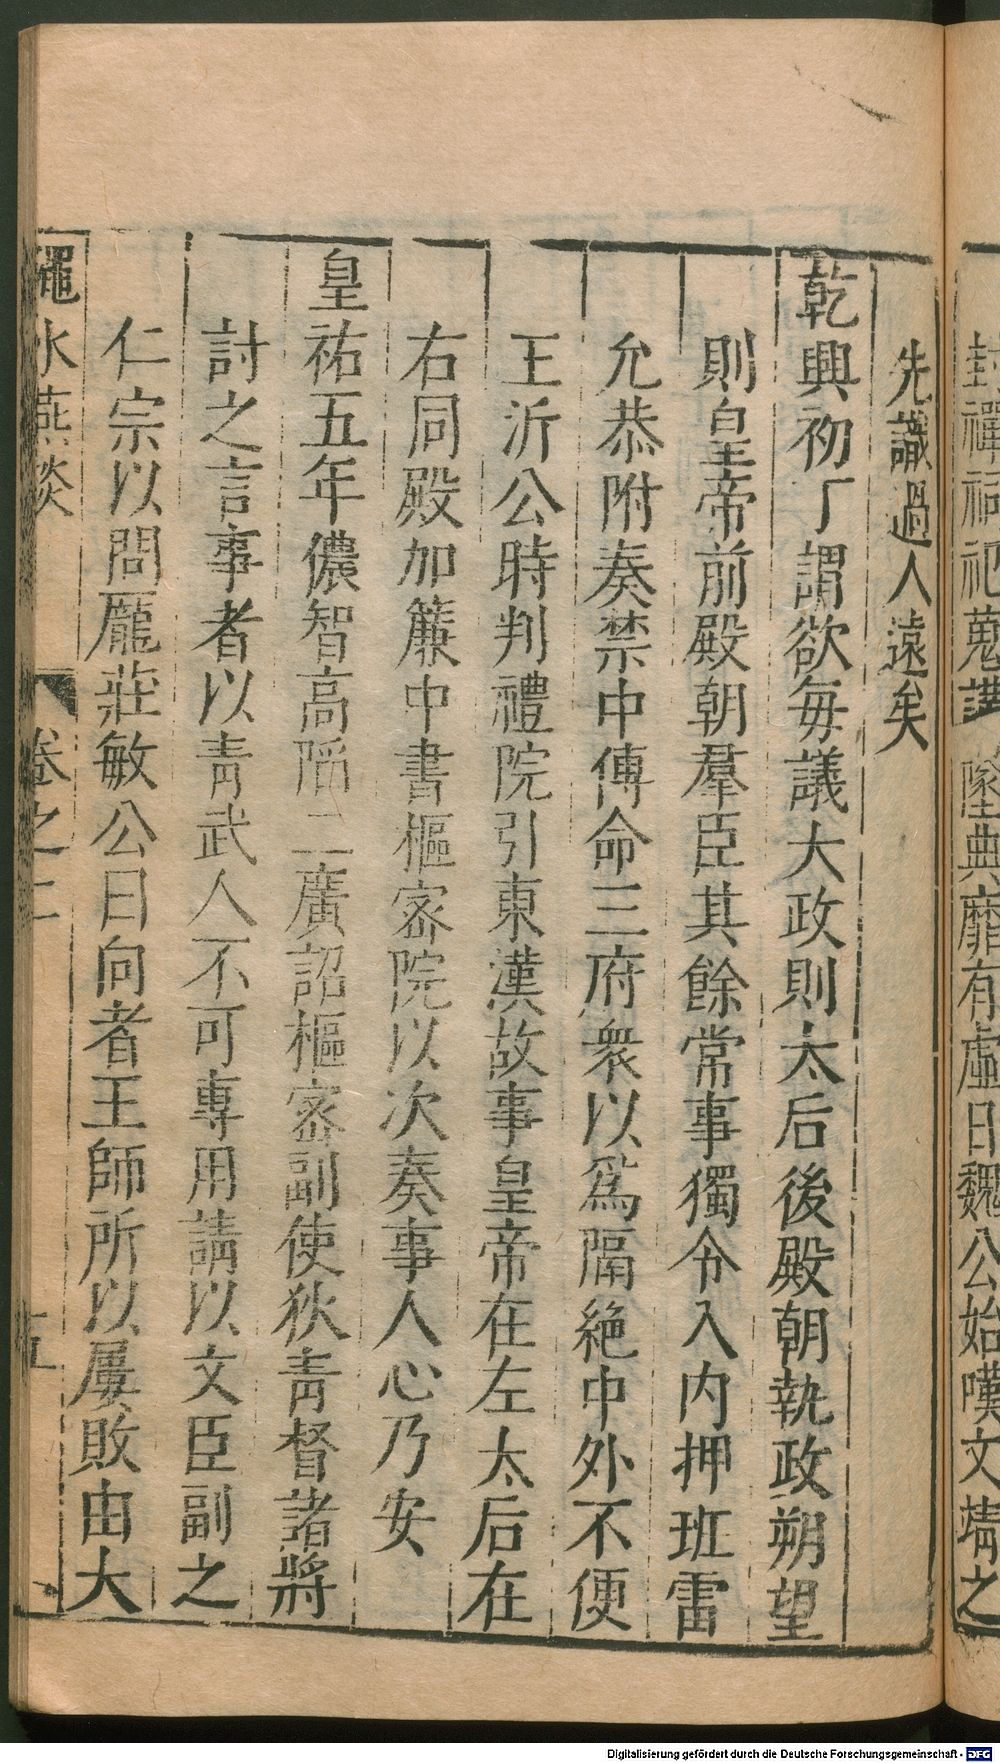 封禪祠祀蒐講墜典靡有虛日魏公始嘆文靖之
先識過人遠矣
乾興初丁謂欲每議大政則太后後殿朝執政朔望
則皇帝前殿朝羣臣其餘常事獨令入內押班雷
允恭附奏禁中傳命三府衆以爲隔絶中外不便
王沂公時判禮院引東漢故事皇帝在左太后在
右同殿加簾中書樞密院以次奏事人心乃安
皇祐五年儂智高陷二廣詔樞密副使狄青督諸將
討之言事者以青武人不可專用請以文臣副之
仁宗以問龐莊敏公曰向者王師所以屢敗由大
澠水燕談 卷之二 五
Digitalisierung gefördert durch die Deutsche Forschungsgemeinschaft - DFG